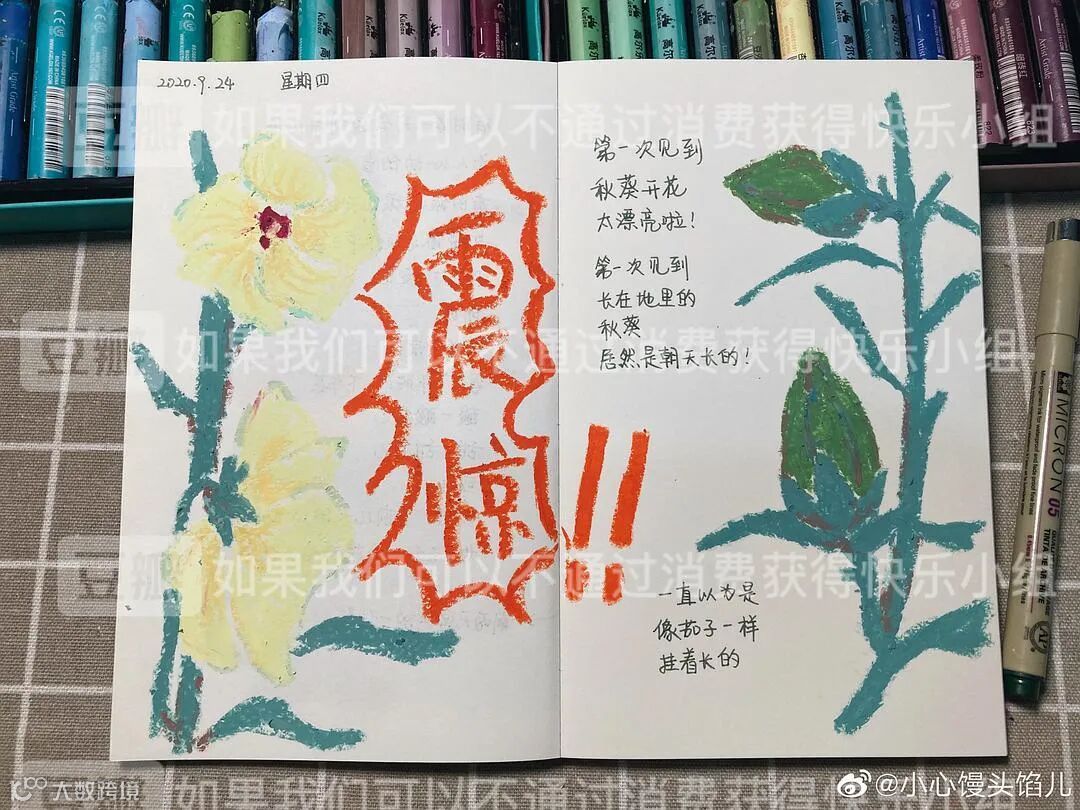 2020.9.24 星期四
震
惊
!!
第一次见到
秋葵开花
太漂亮啦!
第一次见到
长在地里的
秋葵
居然是朝天长的!
一直以为是
像茄子一样
挂着长的
MICRON 05
豆瓣 如果我们可以不通过消费获得快乐小组
豆瓣 如果我们可以不通过消费获得快乐小组
豆瓣 如果我们可以不通过消费获得快乐小组
如果我们可以不通过消费获得快乐小组
大数跨境
@小心馒头馅儿